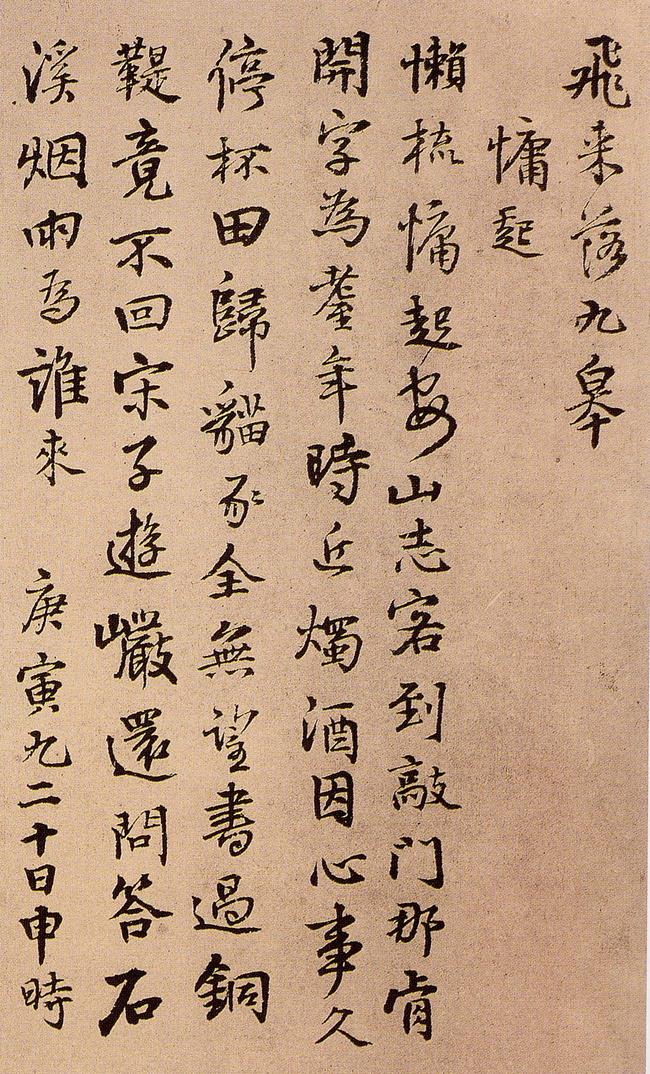 飛来落九皋
慵起
懶梳慵起安山志客到敲門那肯
開字為耋年時近燭酒因心事久
停杯田歸貓豕全無望書過銅
鞮竟不回宋子遊巖還問答石
溪烟雨為誰來 庚寅九二十日申時